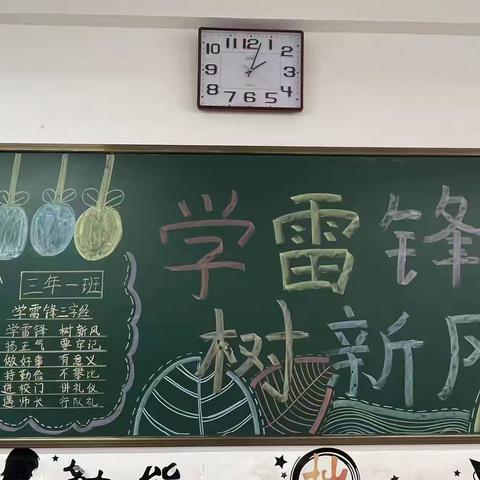 10 11 12 1 2 3 4 5 6 7 8 9
学雷锋
树新风
三年一班
学雷锋三字经
学雷锋 树新风
扬正气 要牢记
做好事 有意义
持勤俭 不攀比
进校门 讲礼仪
遇师长 行队礼